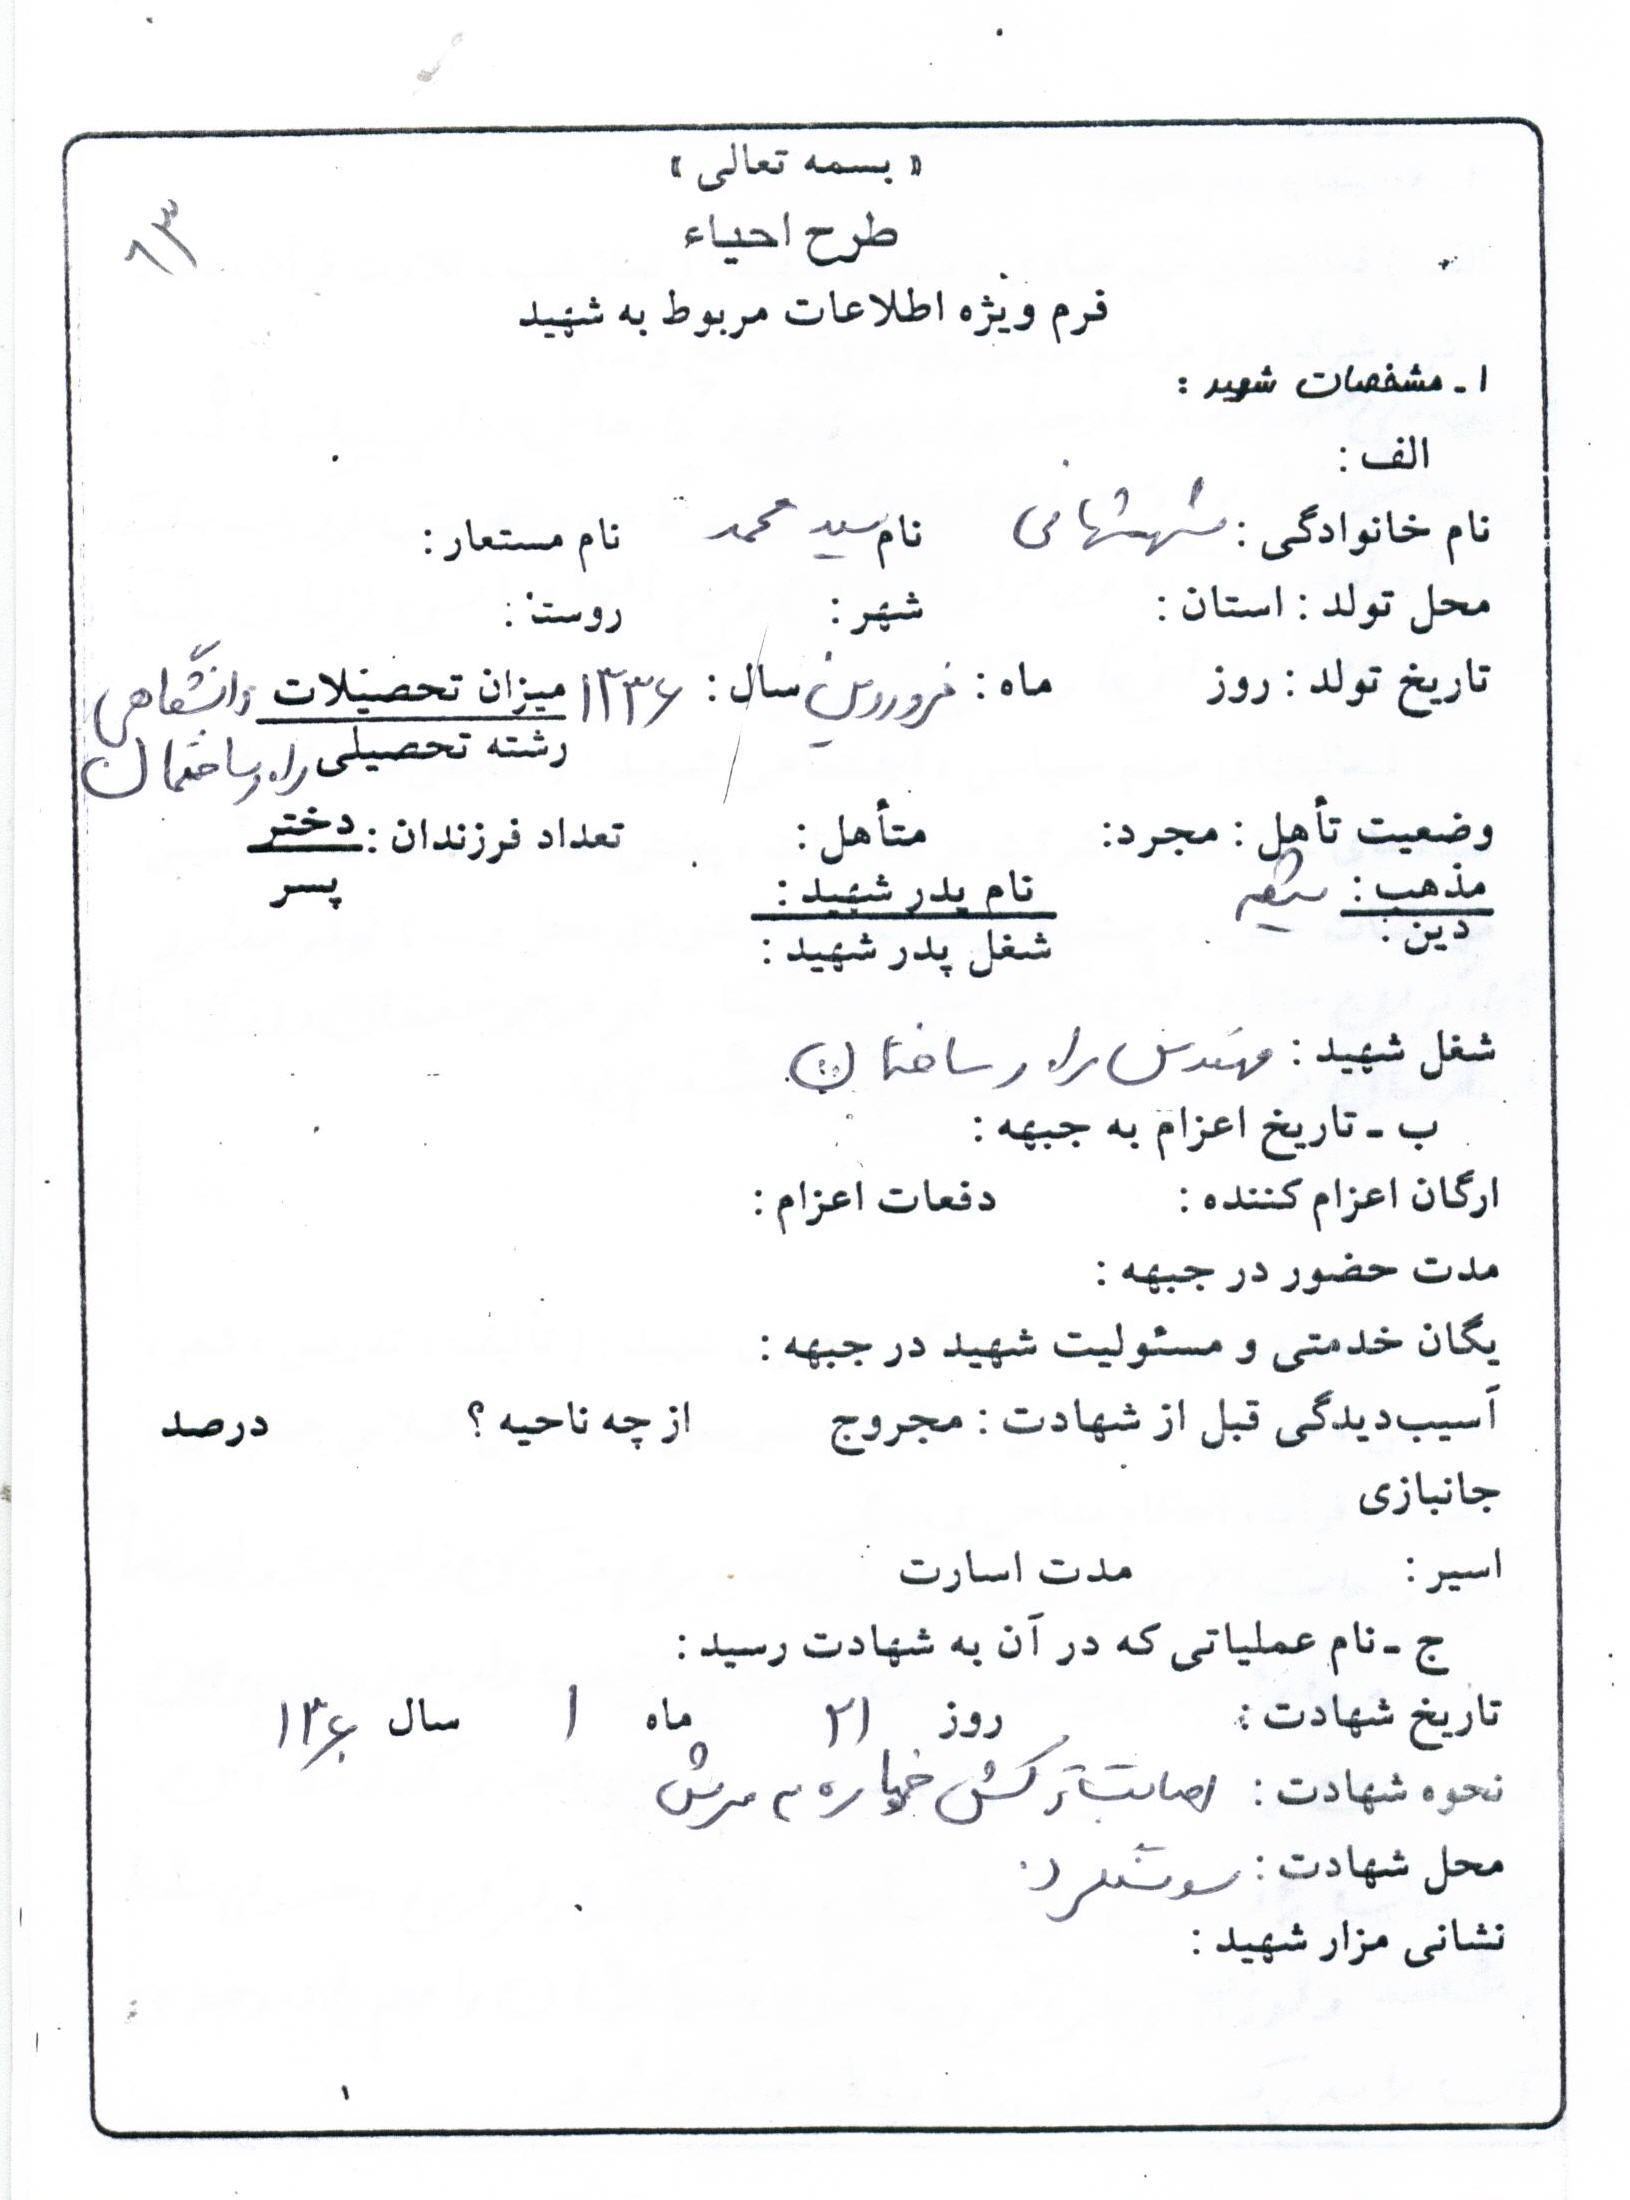 « بسمه تعالی »
طرح احیاء
۶۳
فرم ویژه اطلاعات مربوط به شهید
۱ـ مشخصات شهید :
الف :
نام خانوادگی : شهشهانی نام سید محمد نام مستعار :
محل تولد : استان : شهر : روستا :
تاریخ تولد : روز ماه : فروردین سال : ۱۳۳۶ میزان تحصیلات دانشگاهی
رشته تحصیلی راه و ساختمان
وضعیت تأهل : مجرد: متأهل : تعداد فرزندان : دختر
پسر
مذهب : شیعه نام پدر شهید :
دین : شغل پدر شهید :
شغل شهید : مهندس راه و ساختمان
ب ـ تاریخ اعزام به جبهه :
ارگان اعزام کننده : دفعات اعزام :
مدت حضور در جبهه :
یگان خدمتی و مسئولیت شهید در جبهه :
آسیب‌دیدگی قبل از شهادت : مجروح از چه ناحیه ؟ درصد
جانبازی
اسیر : مدت اسارت
ج ـ نام عملیاتی که در آن به شهادت رسید :
تاریخ شهادت : روز ۲۱ ماه ۱ سال ۱۳۶۰
نحوه شهادت : اصابت ترکش خمپاره به سرش
محل شهادت : سوسنگرد
نشانی مزار شهید :
۱